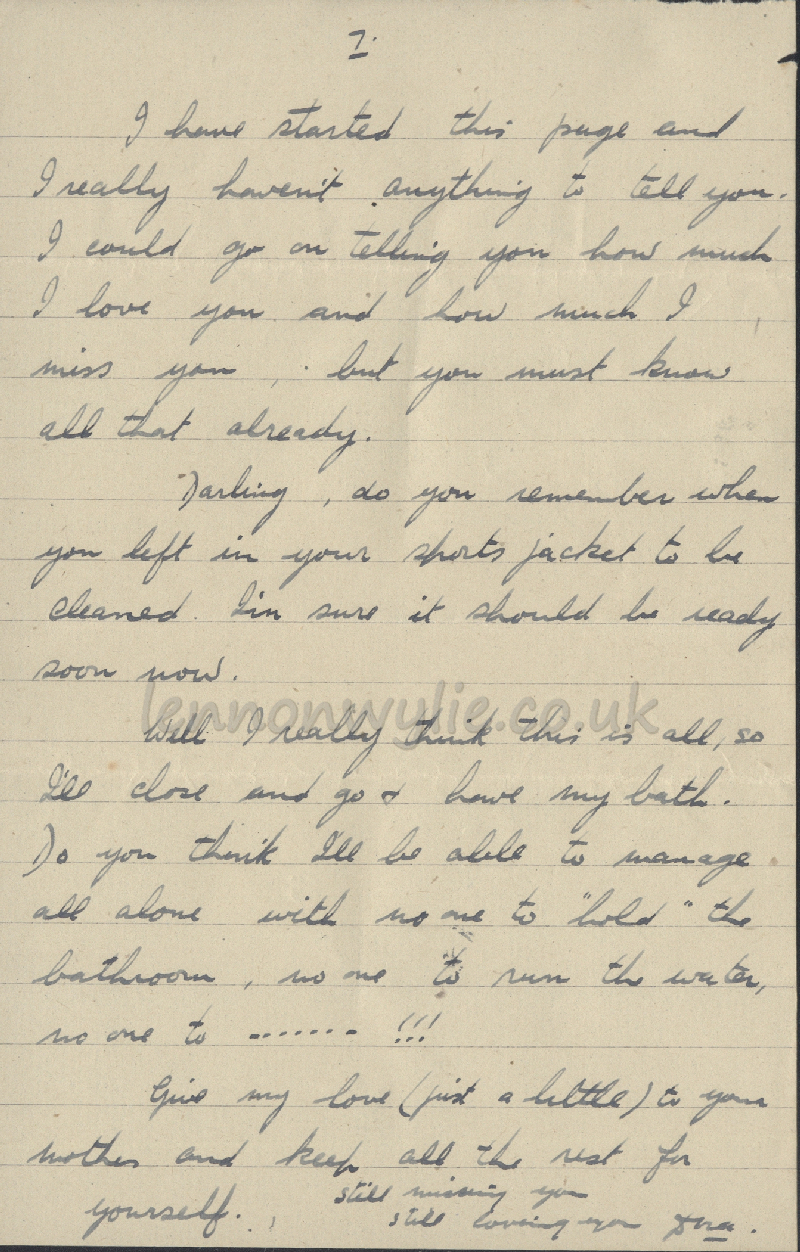 7.
I have started this page and
I really haven't anything to tell you.
I could go on telling you how much
I love you and how much I
miss you, but you must know
all that already.
Darling, do you remember when
you left in your sports jacket to be
cleaned. I'm sure it should be ready
soon now.
lennonwylie.co.uk
Well I really think this is all, so
I'll close and go & have my bath.
Do you think I'll be able to manage
all alone with no one to "hold" the
bathroom, no one to run the water,
no one to ------- !!!
Give my love (just a little) to your
mother and keep all the rest for
yourself.
still missing you
still loving you